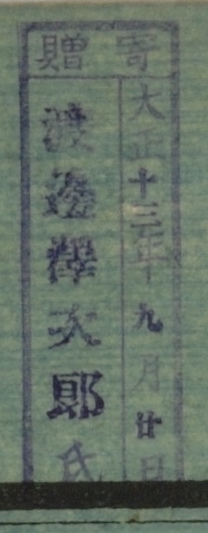 寄贈
大正十三年九月廿日
渡邊釋次郎氏